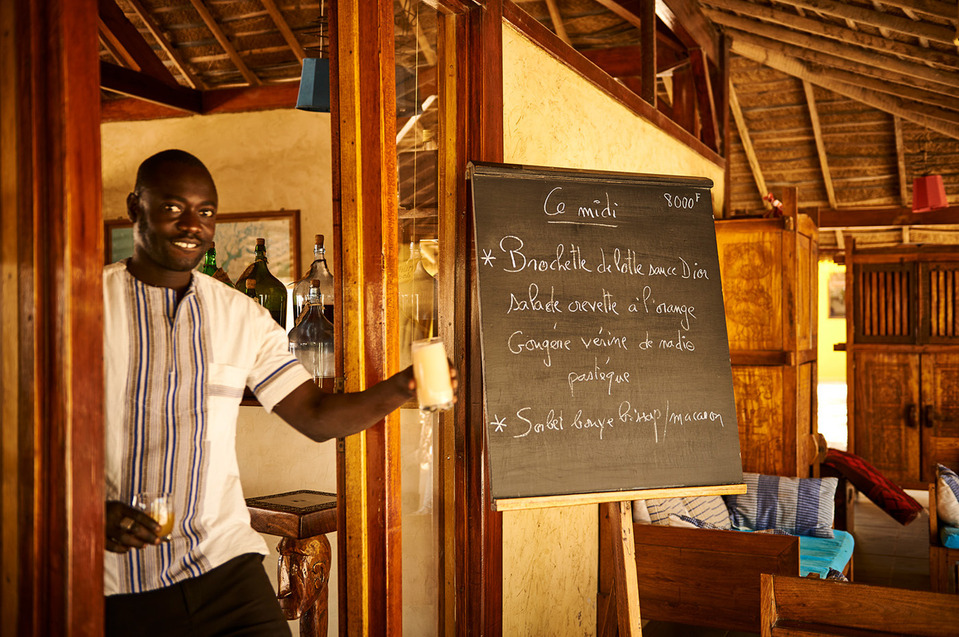 Ce midi 8000F
* Brochette de lotte sauce Dior
salade crevette à l'orange
Gougére vérine de radio
pastéque
* Sorbet bouye bissap/macaron